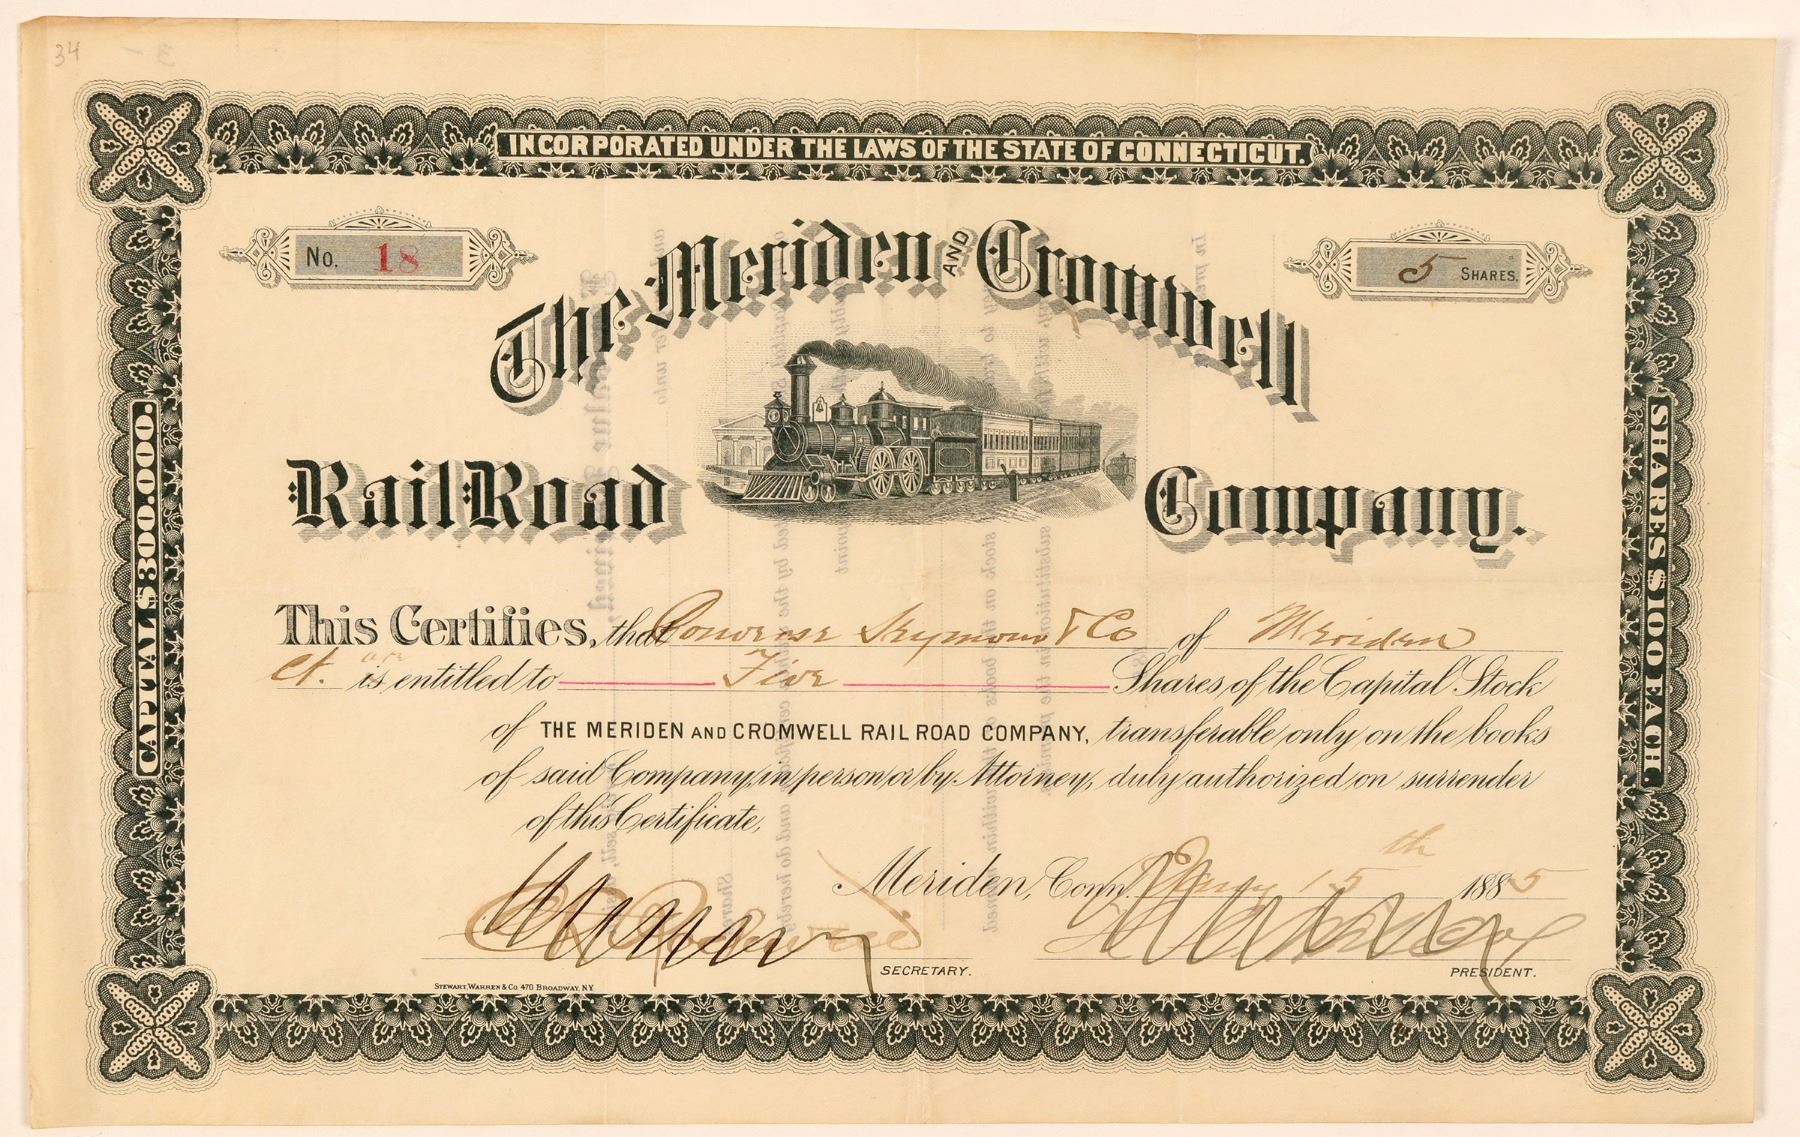 34
INCORPORATED UNDER THE LAWS OF THE STATE OF CONNECTICUT.
No. 18
5 SHARES.
The Meriden AND Cromwell
RailRoad Company.
CAPITAL $300.000.
SHARES $100 EACH.
This Certifies, that Converse Seymour & Co of Meriden
Ct. are is entitled to Five Shares of the Capital Stock
of THE MERIDEN AND CROMWELL RAIL ROAD COMPANY, transferable only on the books
of said Company, in person, or by Attorney, duly authorized on surrender
of this Certificate,
Meriden, Conn. 15th 1885
SECRETARY.
PRESIDENT.
STEWART, WARREN & Co. 470 BROADWAY, N.Y